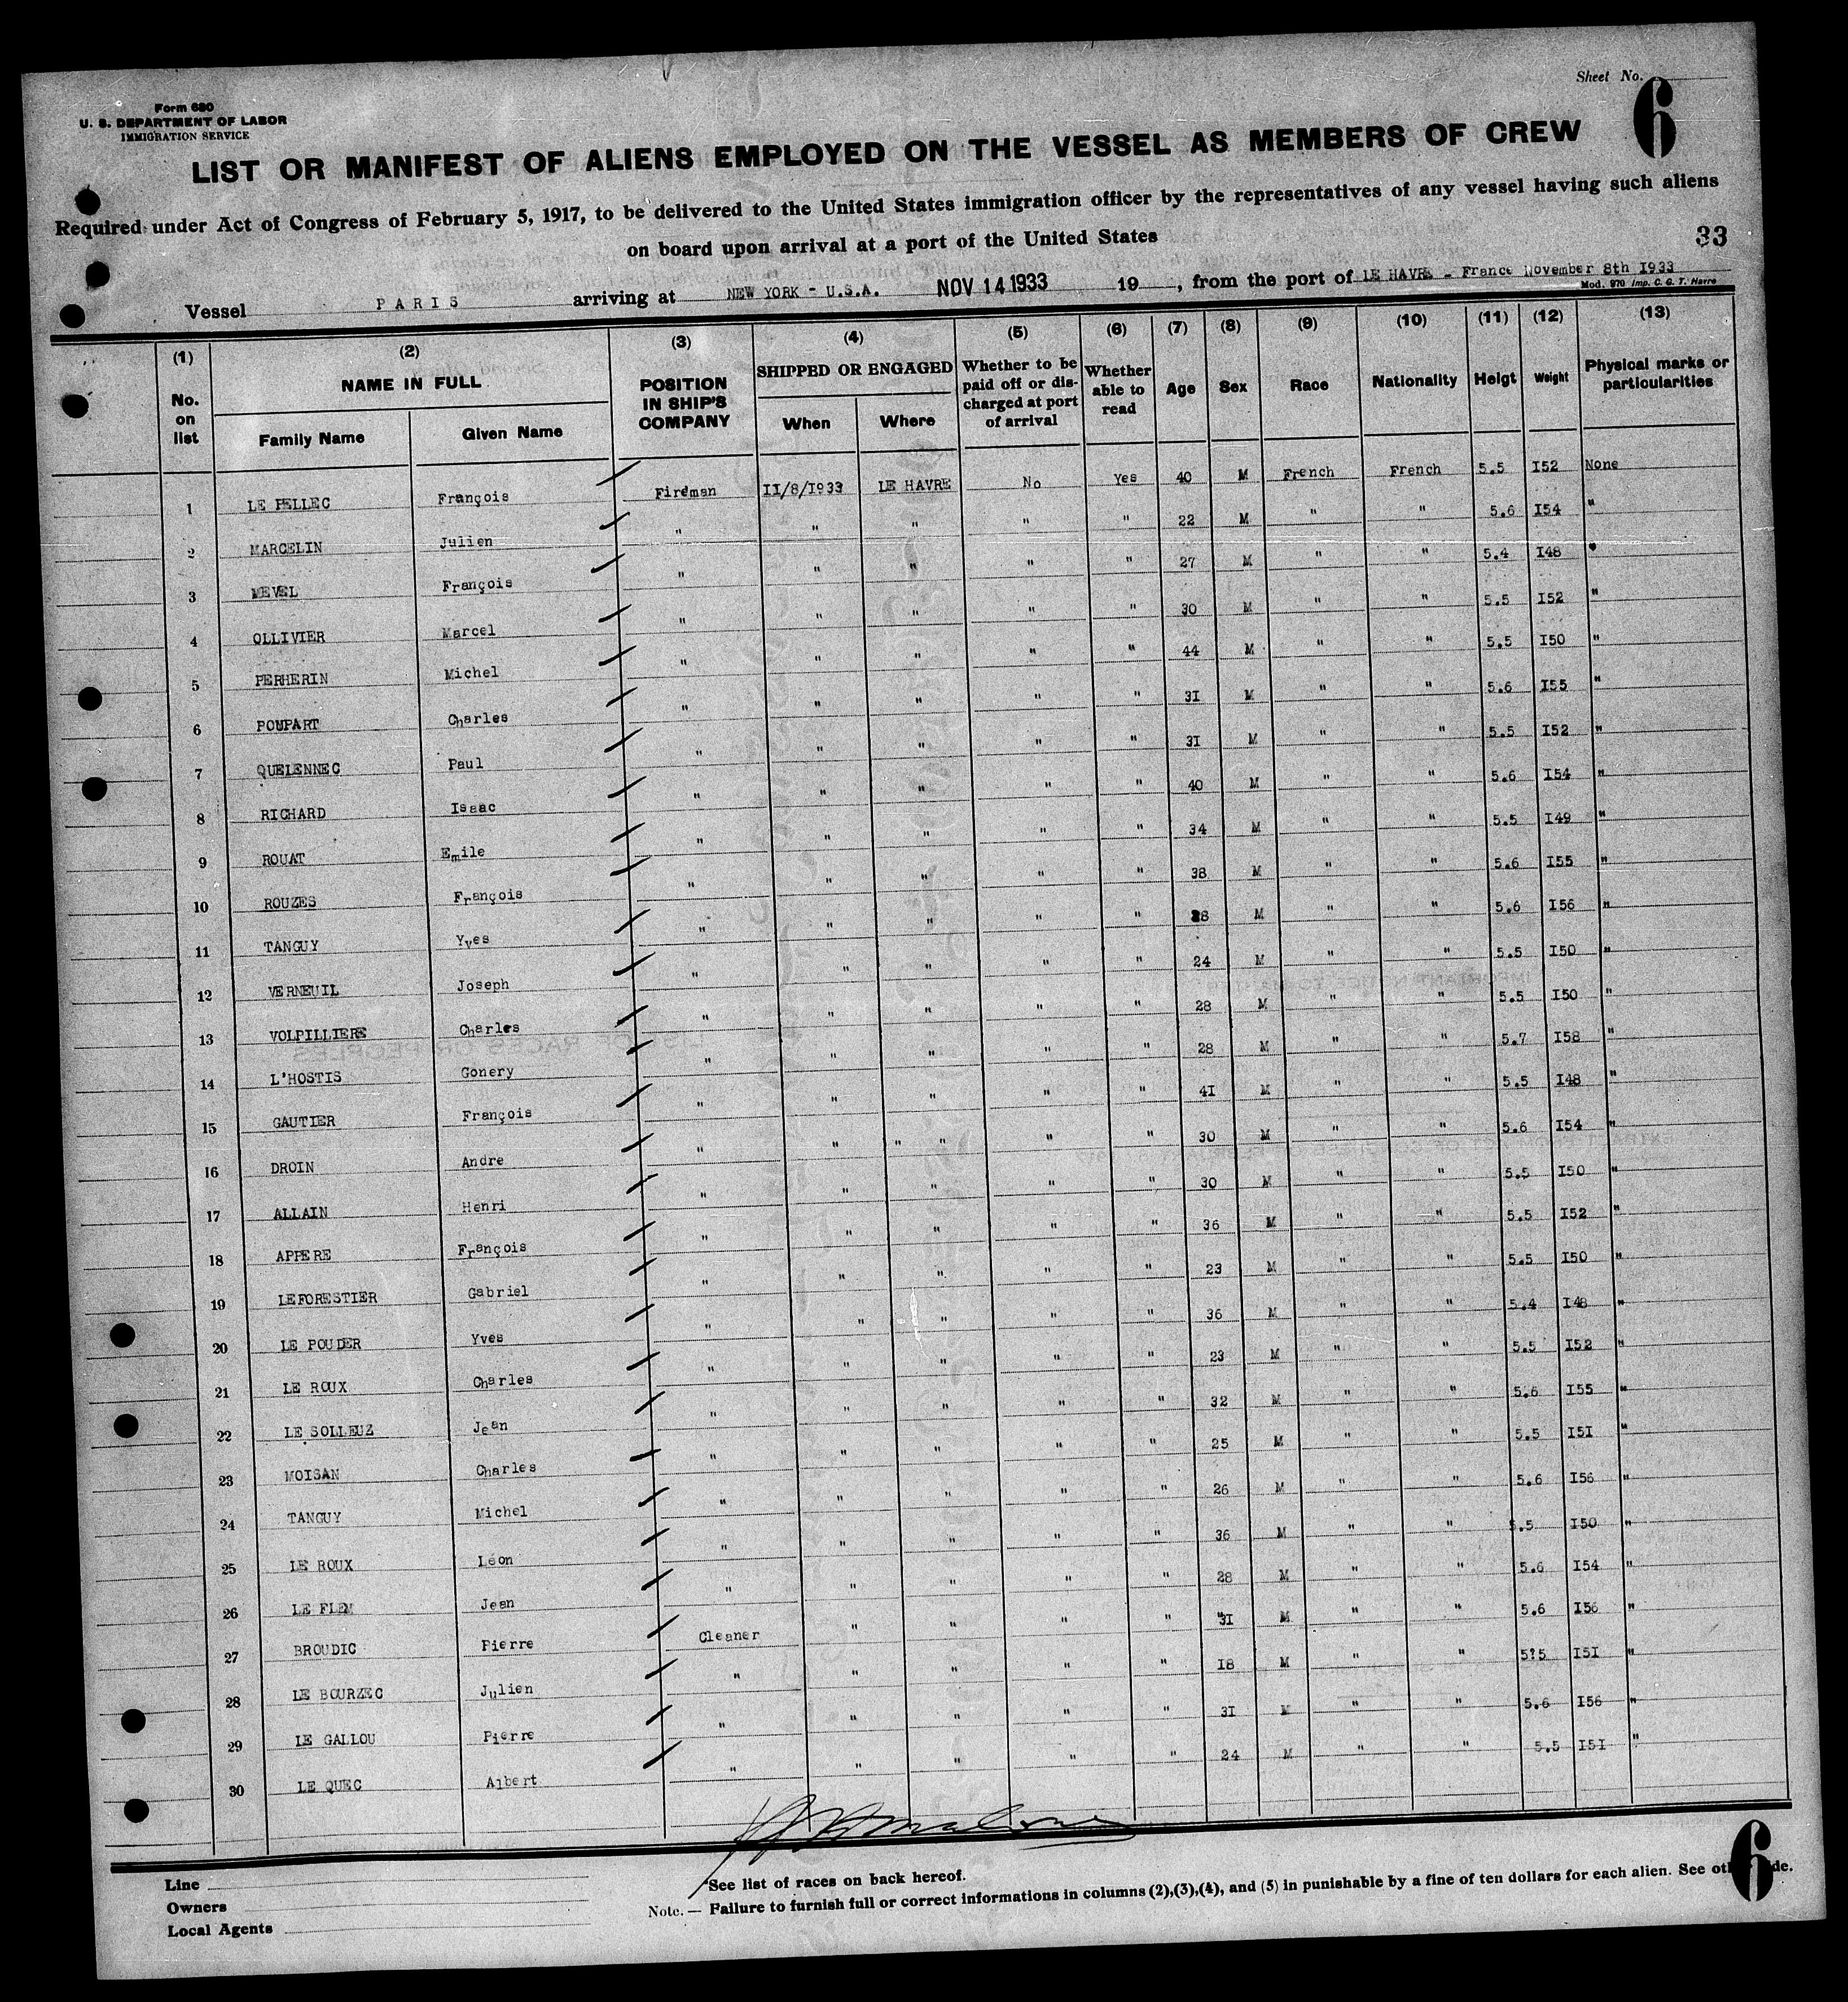 Sheet No. 6
Form 680
U. S. DEPARTMENT OF LABOR
IMMIGRATION SERVICE
LIST OR MANIFEST OF ALIENS EMPLOYED ON THE VESSEL AS MEMBERS OF CREW
Required under Act of Congress of February 5, 1917, to be delivered to the United States immigration officer by the representatives of any vessel having such aliens
on board upon arrival at a port of the United States
33
Vessel PARIS arriving at NEW YORK - U.S.A. NOV 14 1933 19 , from the port of LE HAVRE - France November 8th I933
Mod. 970 Imp. C. G. T. Havre
(1) (2) (3) (4) (5) (6) (7) (8) (9) (10) (11) (12) (13)
No. on list NAME IN FULL Family Name Given Name POSITION IN SHIP'S COMPANY SHIPPED OR ENGAGED When Where Whether to be paid off or discharged at port of arrival Whether able to read Age Sex Race Nationality Heigt Weight Physical marks or particularities
1 LE PELLEC François Fireman II/8/I933 LE HAVRE No Yes 40 M French French 5.5 I52 None
2 MARCELIN Julien " " " " " 22 M " " 5.6 I54 "
3 MEVEL François " " " " " 27 M " " 5.4 I48 "
4 OLLIVIER Marcel " " " " " 30 M " " 5.5 I52 "
5 PERHERIN Michel " " " " " 44 M " " 5.5 I50 "
6 POUPART Charles " " " " " 3I M " " 5.6 I55 "
7 QUELENNEC Paul " " " " " 3I M " " 5.5 I52 "
8 RICHARD Isaac " " " " " 40 M " " 5.6 I54 "
9 ROUAT Emile " " " " " 34 M " " 5.5 I49 "
10 ROUZES François " " " " " 38 M " " 5.6 I55 "
11 TANGUY Yves " " " " " 28 M " " 5.6 I56 "
12 VERNEUIL Joseph " " " " " 24 M " " 5.5 I50 "
13 VOLPILLIERE Charles " " " " " 28 M " " 5.5 I50 "
14 L'HOSTIS Gonery " " " " " 28 M " " 5.7 I58 "
15 GAUTIER François " " " " " 4I M " " 5.5 I48 "
16 DROIN Andre " " " " " " 30 M " " 5.6 I54 "
17 ALLAIN Henri " " " " " 30 M " " 5.5 I50 "
18 APPERE François " " " " " 36 M " " 5.5 I52 "
19 LEFORESTIER Gabriel " " " " " 23 M " " 5.5 I50 "
20 LE POUDER Yves " " " " " 36 M " " 5.4 I48 "
21 LE ROUX Charles " " " " " 23 M " " 5.5 I52 "
22 LE SOLLEUZ Jean " " " " " 32 M " " 5.6 I55 "
23 MOISAN Charles " " " " " 25 M " " 5.5 I5I "
24 TANGUY Michel " " " " " 26 M " " 5.6 I56 "
25 LE ROUX Léon " " " " " 36 M " " 5.5 I50 "
26 LE FLEM Jean " " " " " 28 M " " 5.6 I54 "
27 BROUDIC Pierre Cleaner " " " " 3I M " " 5.6 I56 "
28 LE BOURZEC Julien " " " " " I8 M " " 5.5 I5I "
29 LE GALLOU Pierre " " " " " 3I M " " 5.6 I56 "
30 LE QUEC Albert " " " " " 24 M " " 5.5 I5I "
Line
Owners
Local Agents
*See list of races on back hereof.
Note.— Failure to furnish full or correct informations in columns (2),(3),(4), and (5) in punishable by a fine of ten dollars for each alien. See other side.
6